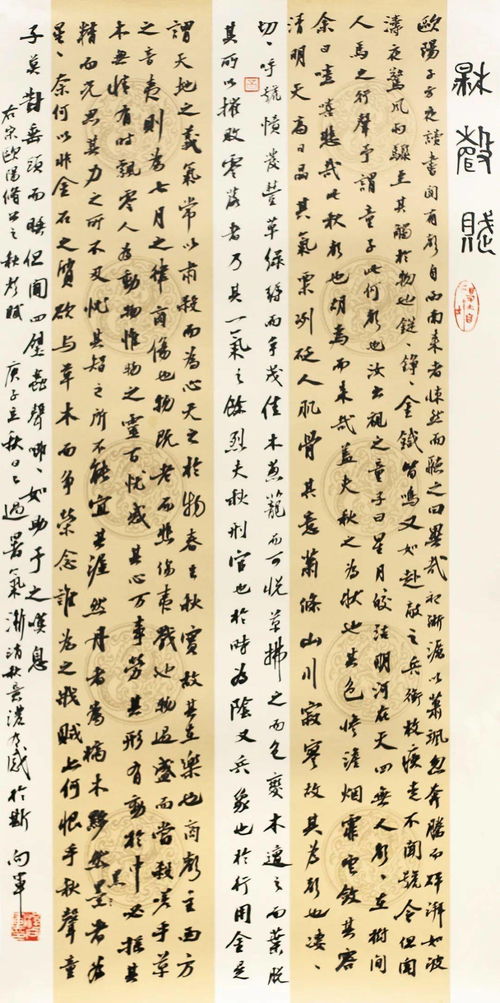 秋聲賦
歐陽子方夜讀書聞有聲自西南來者悚然而聽之曰異哉初淅瀝以蕭颯忽奔騰而砰湃如波
濤夜驚風雨驟至其觸於物也鏦〻錚〻金鐵皆鳴又如赴敵之兵銜枚疾走不聞號令但聞
人馬之行聲予謂童子此何聲也汝出視之童子曰星月皎潔明河在天四無人聲〻在樹間
余曰噫嘻悲哉此秋聲也胡為而來哉蓋夫秋之為狀也其色慘澹烟霏雲斂其容
清明天高日晶其氣栗冽砭人肌骨其意蕭條山川寂寥故其為聲也淒〻
切〻呼號憤發豐草綠縟而爭茂佳木蔥籠而可悅草拂之而色變木遭之而葉脫
其所以摧敗零落者乃其一氣之餘烈夫秋刑官也於時為陰又兵象也於行用金是
謂天地之義氣常以肅殺而為心天之於物春生秋實故其在樂也商聲主西方
之音夷則為七月之律商傷也物既老而悲傷夷戮也物過盛而當殺嗟乎草
木無情有時飄零人為動物惟物之靈百憂感其心万事勞其形有動於中必搖其
精而況思其力之所不及憂其智之所不能宜其渥然丹者為槁木黟然黑者為
星〻奈何以非金石之質欲與草木而爭榮念誰為之戕賊亦何恨乎秋聲童
子莫對垂頭而睡但聞四壁蟲聲唧〻如助予之嘆息
右宋歐陽脩公之秋聲賦 庚子立秋日已過暑氣漸消秋意濃有感於斯 向軍